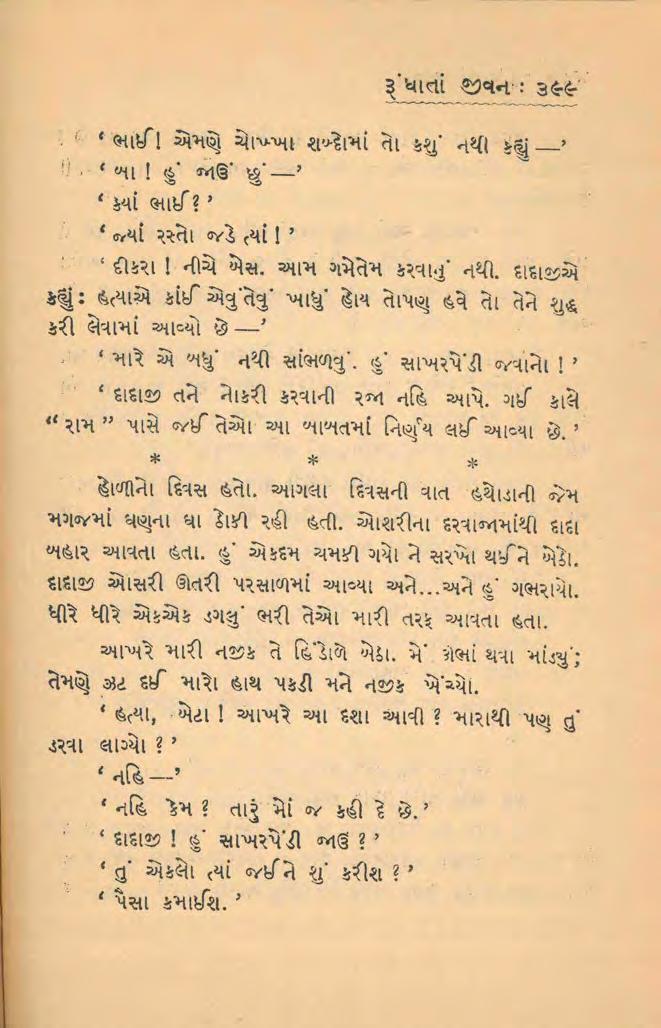 રૂંધાતાં જીવન : ૩૯૯
‘ ભાઈ! એમણે ચોખ્ખા શબ્દોમાં તો કશું નથી કહ્યું —’
‘ બા ! હું જાઉં છું —’
‘ ક્યાં ભાઈ? ’
‘ જ્યાં રસ્તો જડે ત્યાં ! ’
‘ દીકરા ! નીચે બેસ. આમ ગમેતેમ કરવાનું નથી. દાદાજીએ
કહ્યું : હત્યાએ કાંઈ એવુંતેવું ખાધું હોય તોપણ હવે તો તેને શુદ્ધ
કરી લેવામાં આવ્યો છે —’
‘ મારે એ બધું નથી સાંભળવું. હું સાખરપેંડી જવાનો ! ’
‘ દાદાજી તને નોકરી કરવાની રજા નહિ આપે. ગઈ કાલે
“ રામ ” પાસે જઈ તેઓ આ બાબતમાં નિર્ણય લઈ આવ્યા છે. ’
* * *
હોળીનો દિવસ હતો. આગલા દિવસની વાત હથોડાની જેમ
મગજમાં ઘણના ઘા ઠોકી રહી હતી. ઓશરીના દરવાજામાંથી દાદા
બહાર આવતા હતા. હું એકદમ ચમકી ગયો ને સરખો થઈને બેઠો.
દાદાજી ઓસરી ઊતરી પરસાળમાં આવ્યા અને...અને હું ગભરાયો.
ધીરે ધીરે એકએક ડગલું ભરી તેઓ મારી તરફ આવતા હતા.
આખરે મારી નજીક તે હિંડોળે બેઠા. મેં ઊભાં થવા માંડ્યું;
તેમણે ઝટ દઈ મારો હાથ પકડી મને નજીક ખેંચ્યો.
‘ હત્યા, બેટા ! આખરે આ દશા આવી ? મારાથી પણ તું
ડરવા લાગ્યો ? ’
‘ નહિ —’
‘ નહિ કેમ ? તારું મોં જ કહી દે છે. ’
‘ દાદાજી ! હું સાખરપેંડી જાઉં ? ’
‘ તું એકલો ત્યાં જઈને શું કરીશ ? ’
‘ પૈસા કમાઈશ. ’